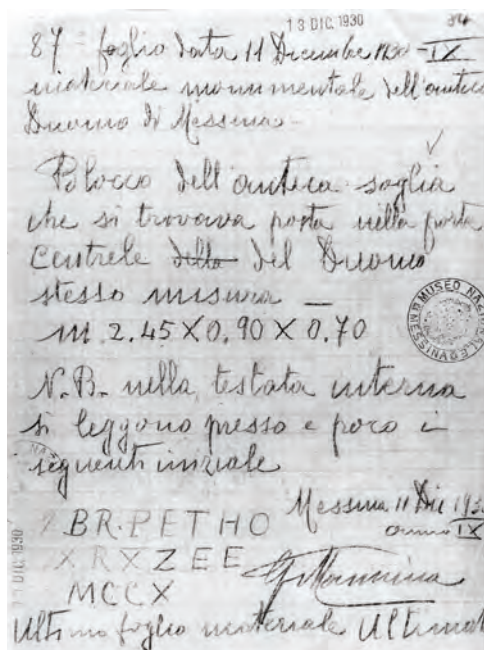 13 DIC. 1930
87 - foglio data 11 Dicembre 1930 - IX
materiale monumentale dell'antico
Duomo di Messina -
Blocco dell'antica soglia
che si trovava posta nella porta
Centrale della del Duomo
stesso misura —
m. 2.45 X 0.90 X 0.70
MUSEO NAZIONALE MESSINA
N.B. nella testata interna
si leggono presso e poco i
seguenti iniziale
Messina 11 Dic 193
anno IX
BR. PETHO
XRXZEE
MCCX
13 DIC 1930
Ultimo foglio materiale Ultimat